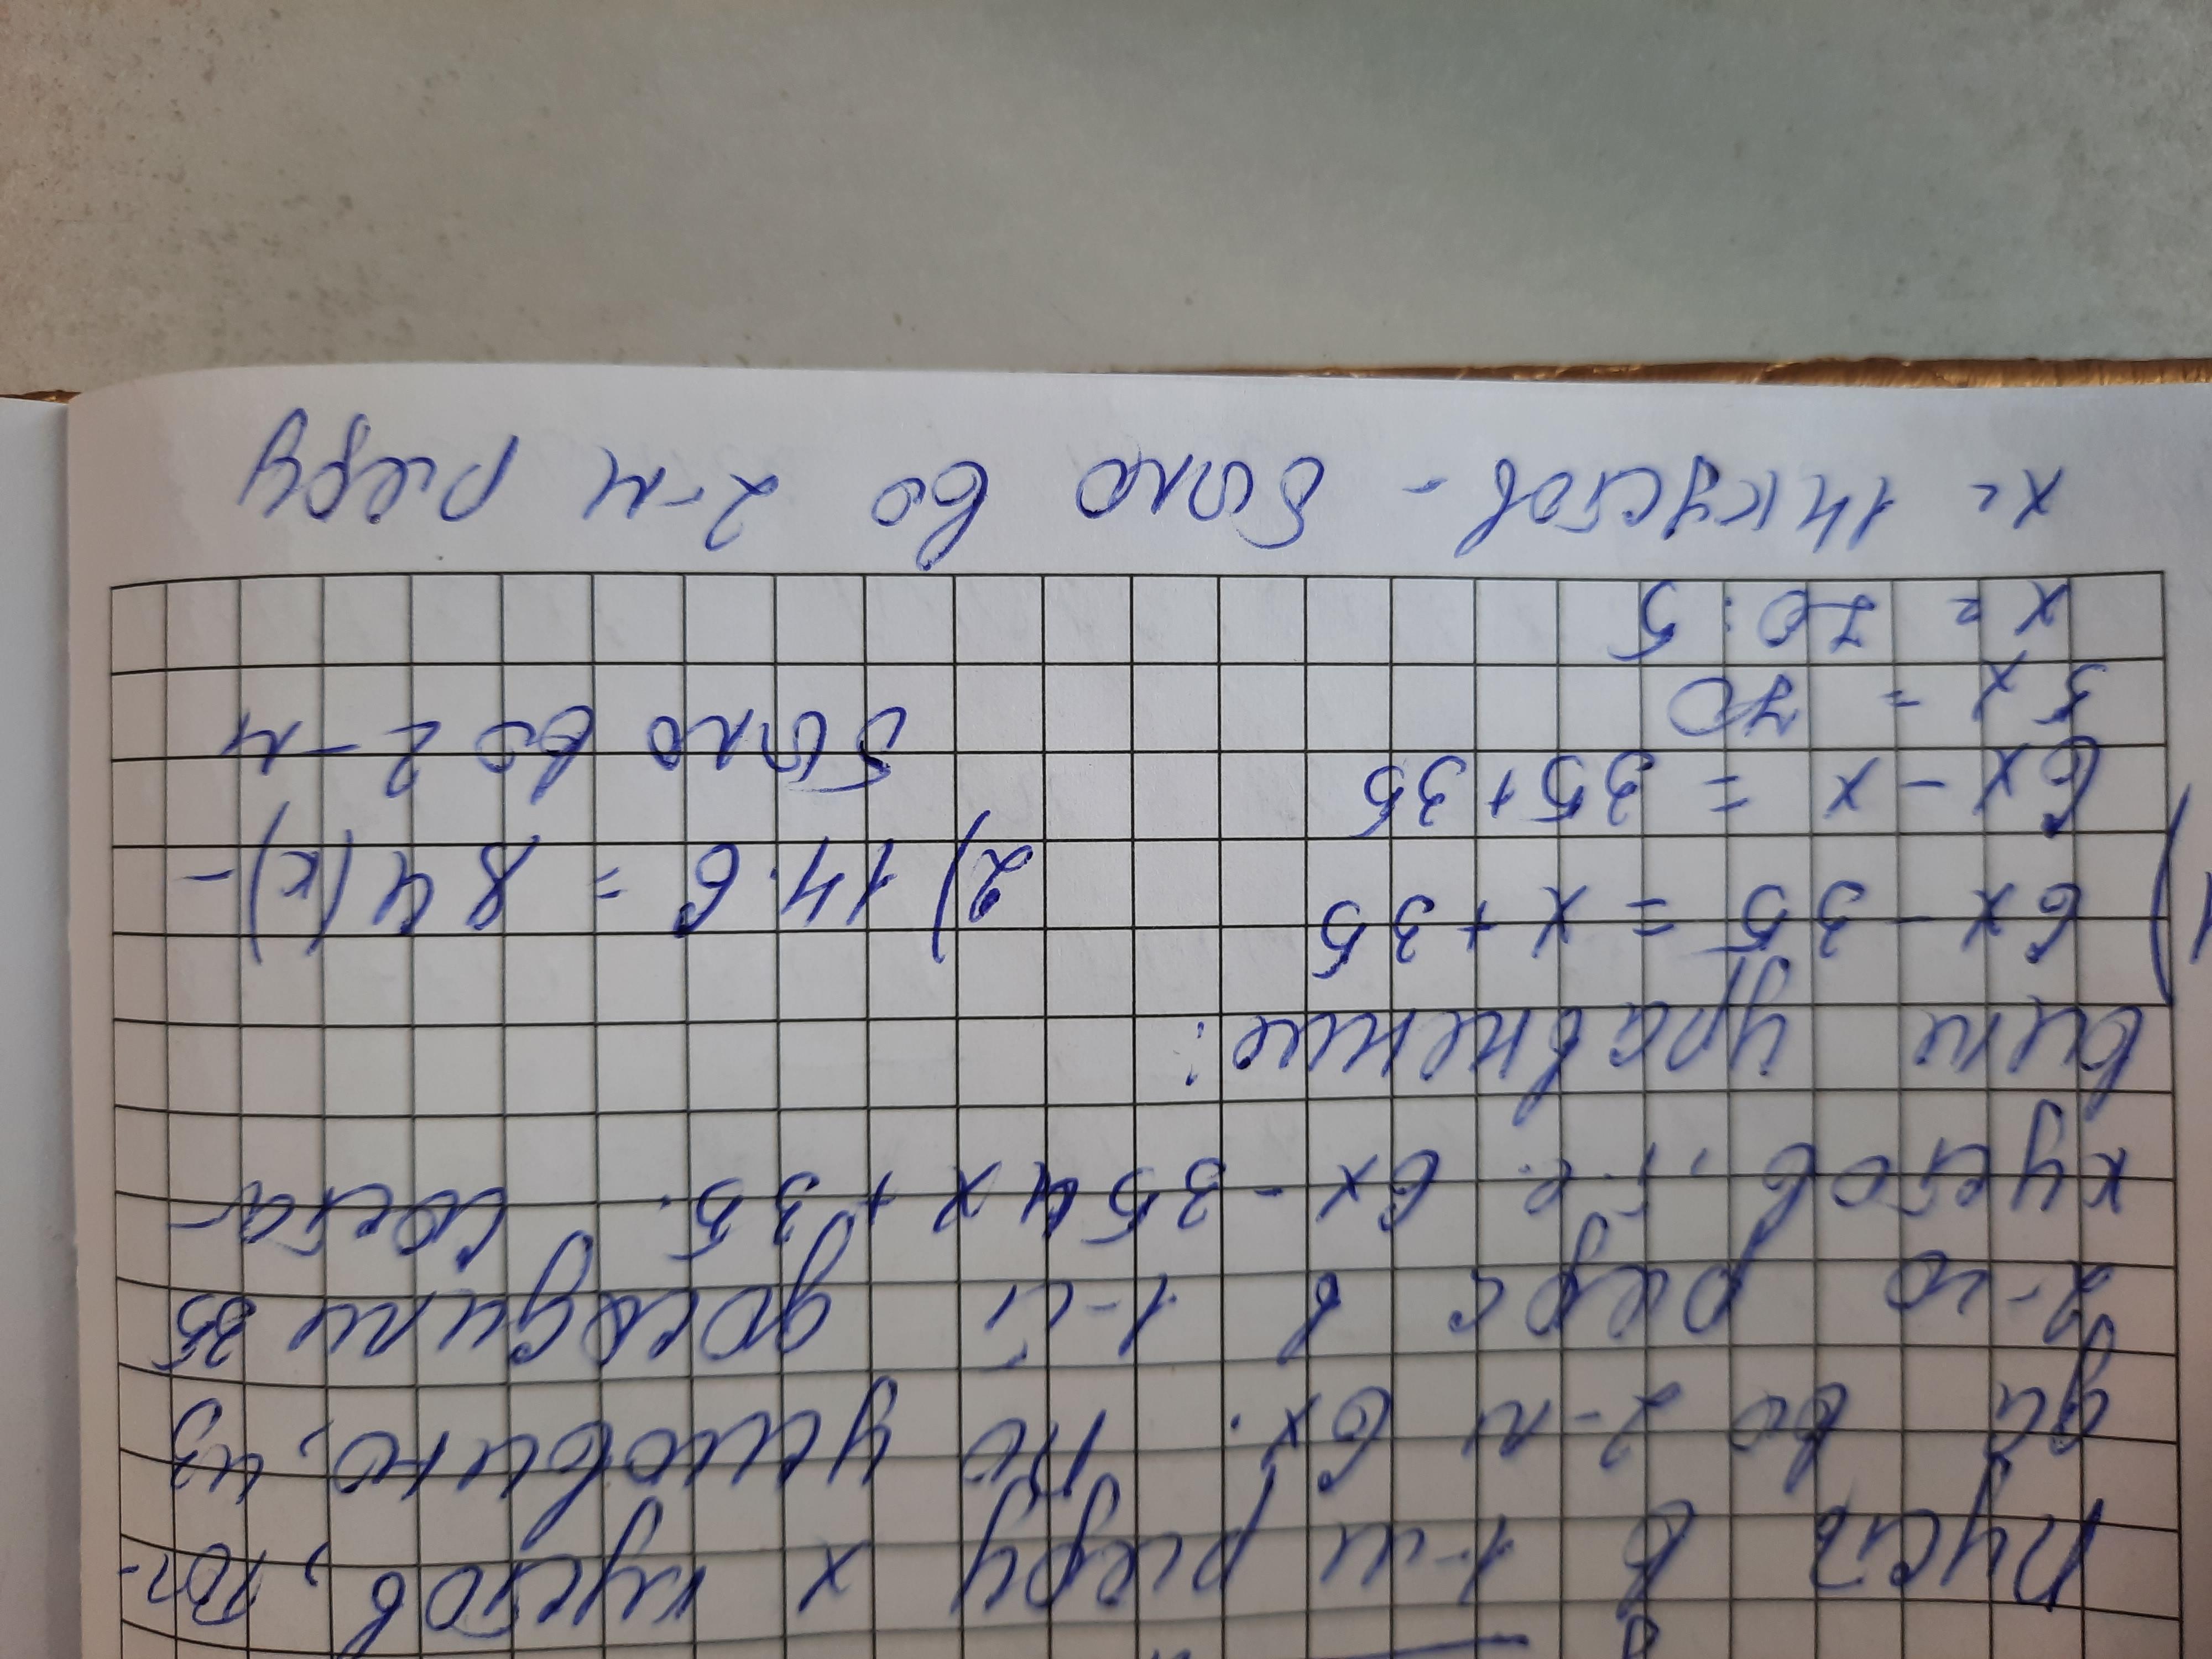 Пусть в 1-м ряду х кустов, тог-
да во 2-м 6х. По условию, из
2-го ряда в 1-й досадили 35
кустов, т.е. 6х - 35 и х + 35. Соста-
вим уравнение:
1) 6х - 35 = х + 35
6х - х = 35 + 35
5х = 70
х = 70:5
х = 14 кустов - было во 2-м ряду
2) 14·6 = 84 (к) -
было во 2-м